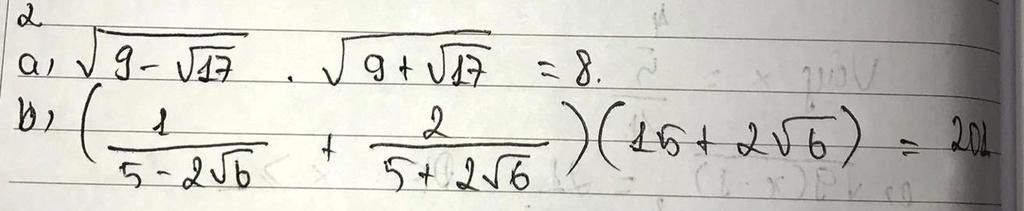 2
a, √(9-√17) . √(9+√17) = 8.
b, (1/(5-2√6) + 2/(5+2√6))(15+2√6) = 201